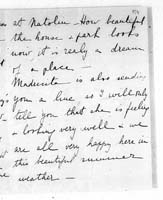 as at Natolin – How beautiful
the house & park looks
now it is really a dream
of a place –
is also sending
you a line so I will only
tell you that she is feeling
& looking very well & we
are all very happy here in
this beautiful summer
weather –